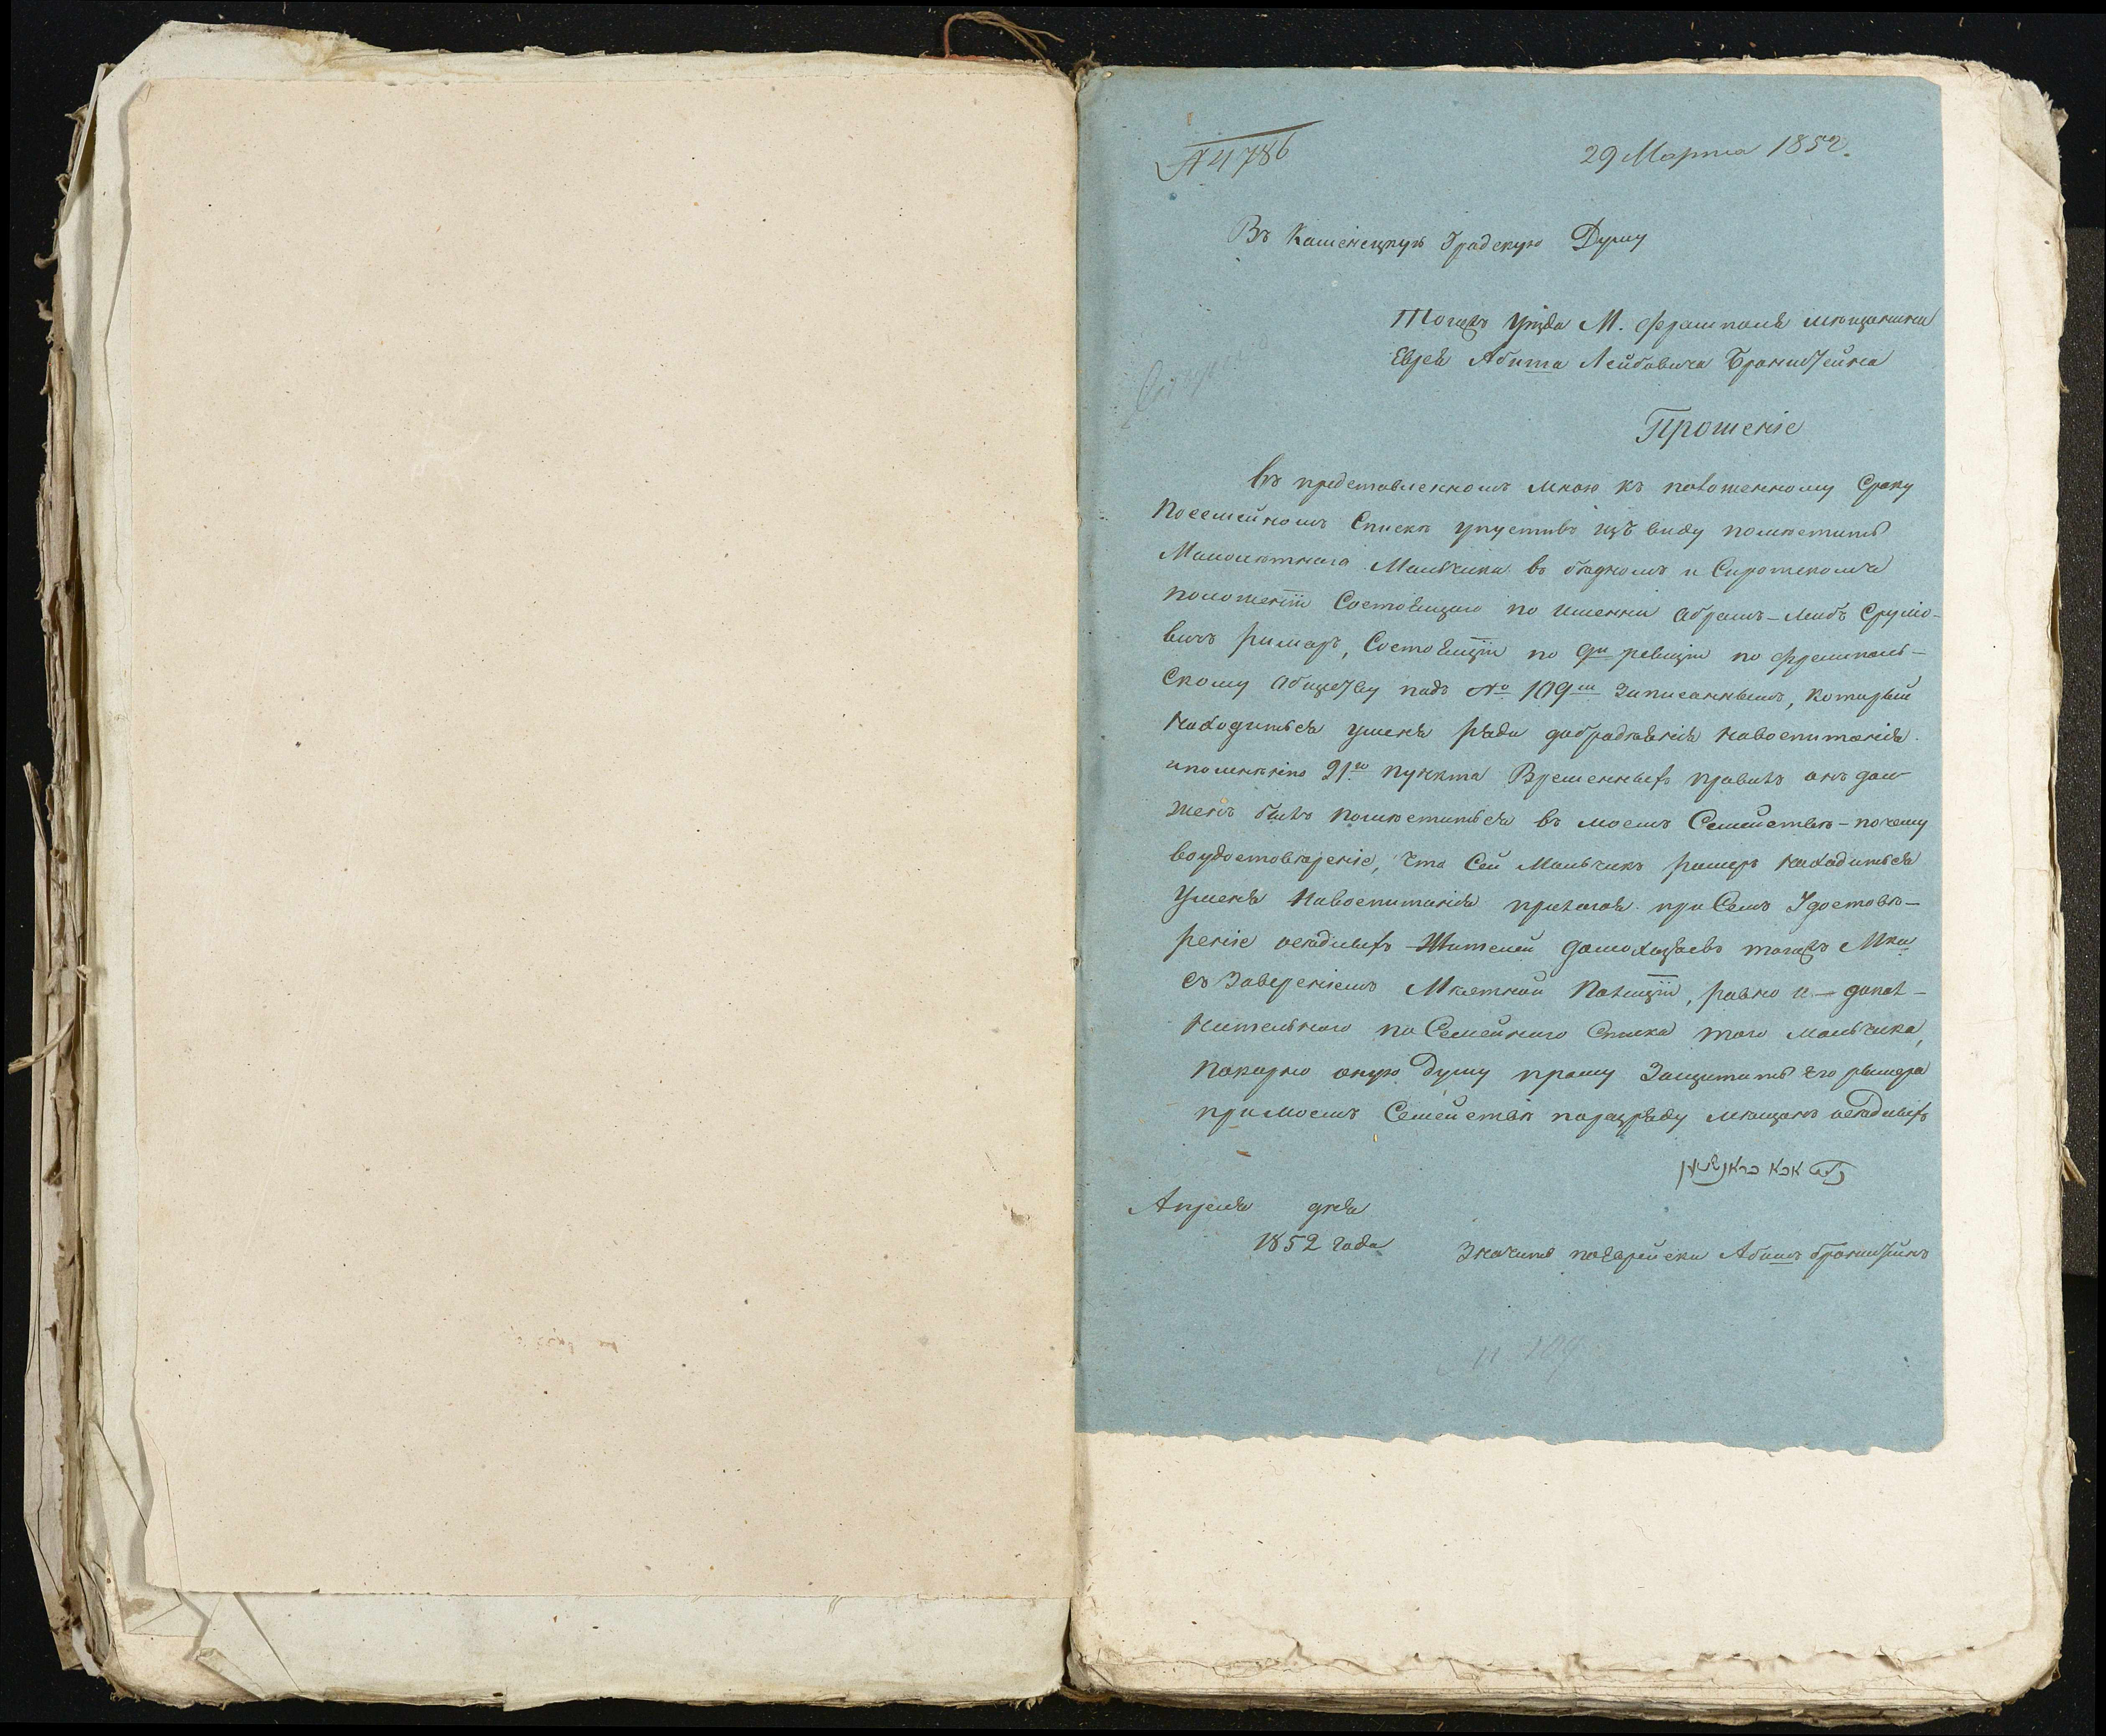 № 4786
29 Марта 1852.
Въ Каменецкую Градскую Думу
Тогожъ Уѣзда М. Фрампола мѣщанина
Еврея Абиша Лейбовича Бронштейна
Прошеніе
Въ представленномъ мною къ положенному Сроку
Посемейномъ Спискѣ упустивъ изъ виду помѣстить
Малолѣтнаго Мальчика въ бѣдномъ и Сиротскомъ
положеніи Состоящаго по имени Абрамъ-Лейбъ Сруліо-
вичъ Римаръ, Состоящій по 9й ревизіи по Фрампольс-
Скому Обществу подъ № 109м записаннымъ, который
находиться уменя ради добродѣянія навоспитанія
иполинѣію 21го пункта Временныхъ правилъ онъ дол-
женъ былъ помѣститься въ моемъ Семействѣ - почему
воудостовѣреніе, что Сей Мальчикъ Римеръ находиться
Уменя Навоспитаніи прилагая при Семъ Удостовѣ-
реніе осѣдлыхъ Жителей домохозяевъ тогожъ Мка
съ Завереніемъ Мѣстной Полиціи, равно и допол-
нительнаго по Семейнаго Списка того мальчика,
Покорно оную Думу прошу Защитать Его Римера
примоемъ Семействѣ поразряду мѣщанъ осѣдлыхъ
אבא בראנשטיין
Апреля дня
1852 года
Значить поЕврейски Абишъ Бронштейнъ
№ 109